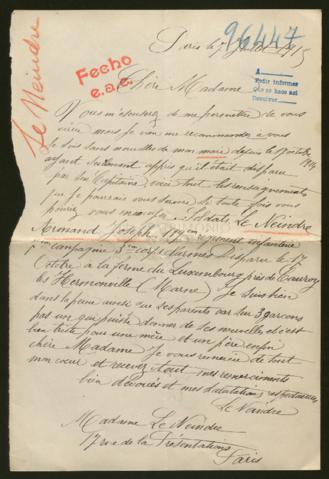 96447
Le Neindre
Paris le 7 Juillet 1915
Fecho
e.a.c.
A
Pedir informes
Chère Madame
Vous m'excuserez de me permettre de vous
mais je viens me recommander a vous
Je suis sans nouvelles de mon mari depuis le 17 octobre 1914
ayant seulement appris qu'il était disparu
par son Capitaine, voici tout les renseignements
que je pourrais vous fournir. Si toute fois vous
Soldat, Le Neindre
Armand Joseph, régiment infanterie
compagnie 3me corps d'armée Disparu le 17
Octobre a la ferme du Luxembourg près de Cauroy
les Hermonville (Marne) Je suis bien
dans la peine aussi que ses parents car sur 3 garçons
pas un qui puisse donner de ses nouvelles et c'est
bien triste pour une mère et un père enfin
chère Madame je vous remercie de tout
mon cœur et recevez tout mes remerciements
bien dévoués et mes salutations respectueuses
Le Neindre
Madame Le Neindre
17 rue de la Présentation
Paris